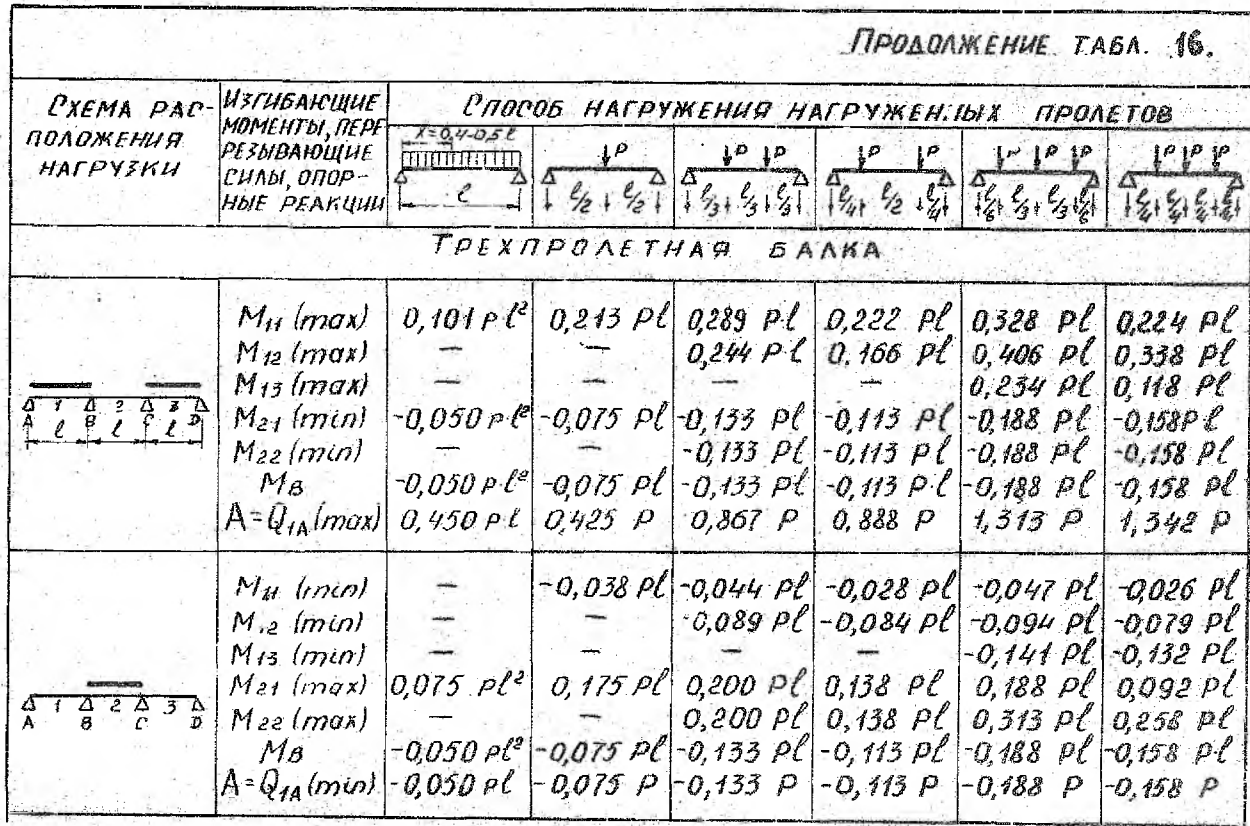 ПРОДОЛЖЕНИЕ ТАБЛ. 16.
СХЕМА РАС-
ПОЛОЖЕНИЯ
НАГРУЗКИ
ИЗГИБАЮЩИЕ
МОМЕНТЫ, ПЕРЕ
РЕЗЫВАЮЩИЕ
СИЛЫ, ОПОР-
НЫЕ РЕАКЦИИ
СПОСОБ НАГРУЖЕНИЯ НАГРУЖЕННЫХ ПРОЛЕТОВ
X=0,4-0,5ℓ
ℓ
P
ℓ/2 ℓ/2
P P
ℓ/3 ℓ/3 ℓ/3
P P
ℓ/4 ℓ/2 ℓ/4
P P P
ℓ/6 ℓ/3 ℓ/3 ℓ/6
P P P
ℓ/4 ℓ/4 ℓ/4 ℓ/4
ТРЕХПРОЛЕТНАЯ БАЛКА
1 2 3
A B C D
ℓ ℓ ℓ
M11 (max) 0,101 pℓ² 0,213 Pℓ 0,289 Pℓ 0,222 Pℓ 0,328 Pℓ 0,224 Pℓ
M12 (max) — — 0,244 Pℓ 0,166 Pℓ 0,406 Pℓ 0,338 Pℓ
M13 (max) — — — — 0,234 Pℓ 0,118 Pℓ
M21 (min) -0,050 pℓ² -0,075 Pℓ -0,133 Pℓ -0,113 Pℓ -0,188 Pℓ -0,158Pℓ
M22 (min) — — -0,133 Pℓ -0,113 Pℓ -0,188 Pℓ -0,158 Pℓ
MB -0,050 pℓ² -0,075 Pℓ -0,133 Pℓ -0,113 Pℓ -0,188 Pℓ -0,158 Pℓ
A=Q1A(max) 0,450 pℓ 0,425 P 0,867 P 0,888 P 1,313 P 1,342 P
A 1 B 2 C 3 D
M11 (min) — -0,038 Pℓ -0,044 Pℓ -0,028 Pℓ -0,047 Pℓ -0,026 Pℓ
M12 (min) — — -0,089 Pℓ -0,084 Pℓ -0,094 Pℓ -0,079 Pℓ
M13 (min) — — — — -0,141 Pℓ -0,132 Pℓ
M21 (max) 0,075 pℓ² 0,175 Pℓ 0,200 Pℓ 0,138 Pℓ 0,188 Pℓ 0,092 Pℓ
M22 (max) — — 0,200 Pℓ 0,138 Pℓ 0,313 Pℓ 0,258 Pℓ
MB -0,050 pℓ² -0,075 Pℓ -0,133 Pℓ -0,113 Pℓ -0,188 Pℓ -0,158 Pℓ
A=Q1A(min) -0,050 pℓ -0,075 P -0,133 P -0,113 P -0,188 P -0,158 P